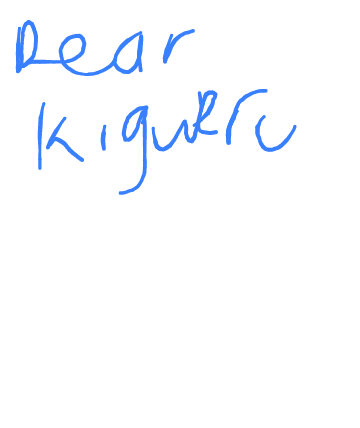 Dear
Kigueru